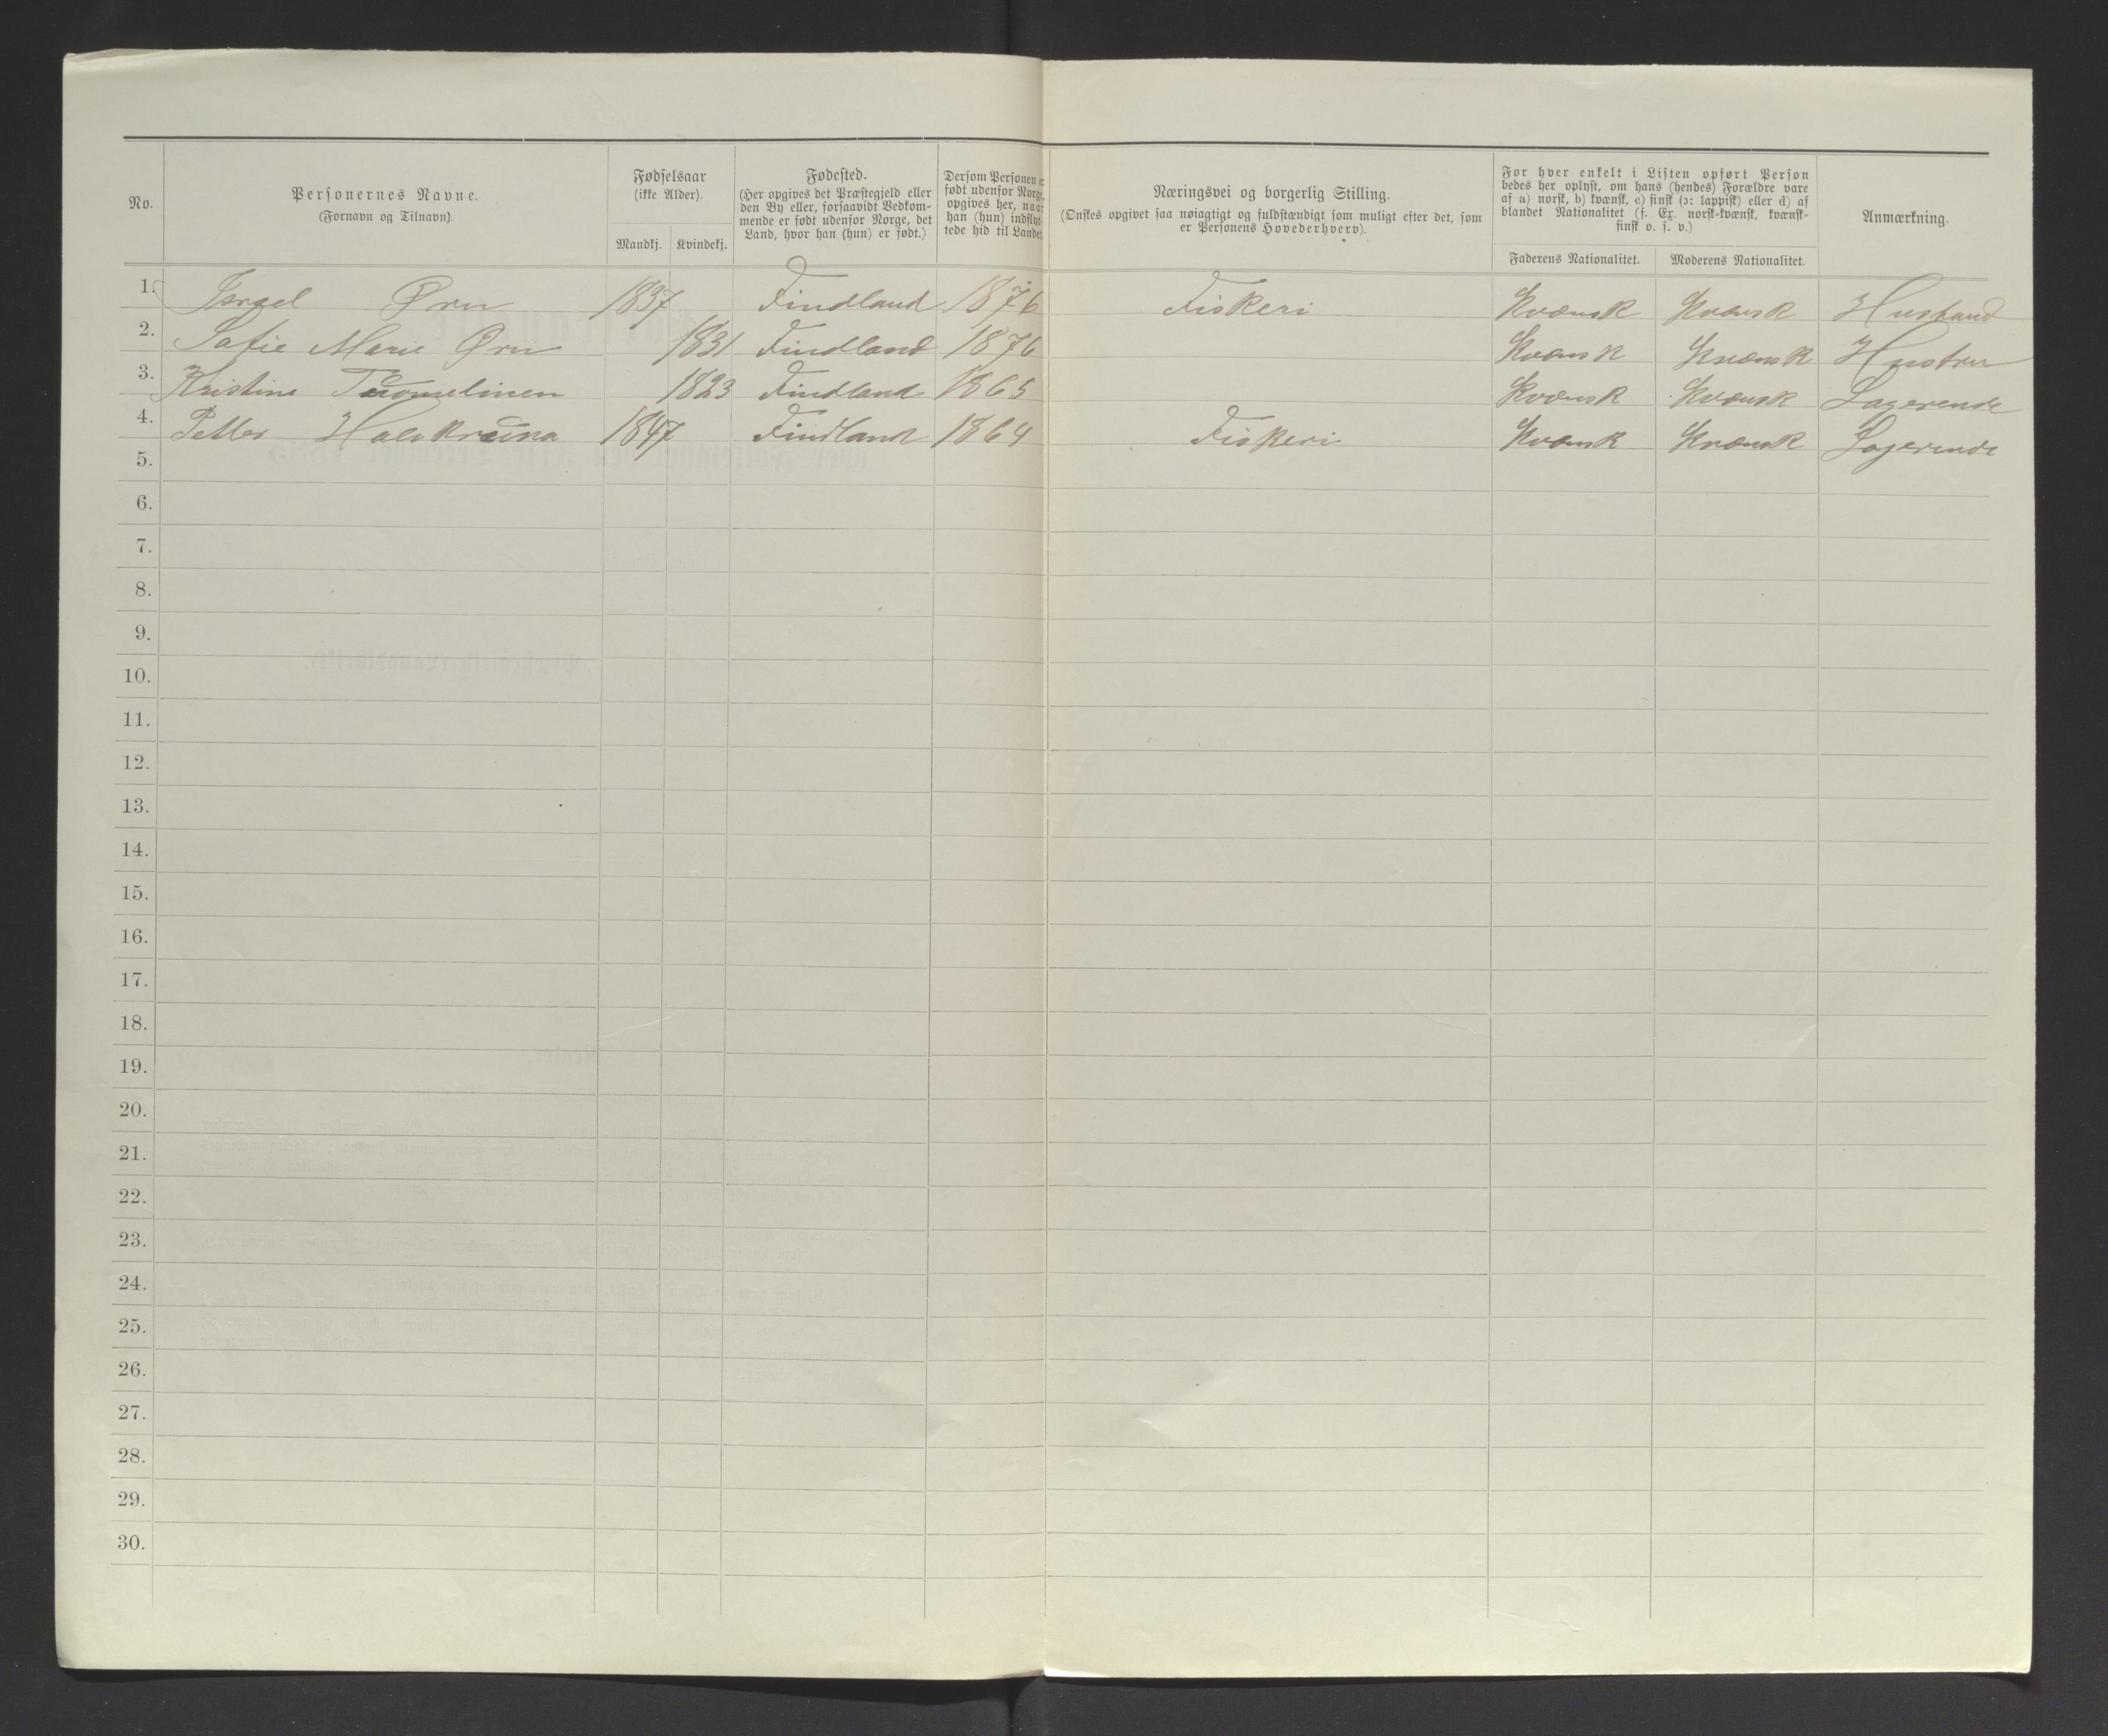 No.
Personernes Navne.
(Fornavn og Tilnavn).
Fødselsaar
(ikke Alder).
Mandkj. Kvindekj.
Fødested.
(Her opgives det Præstegjeld eller
den By eller, forsaavidt Vedkom-
mende er født udenfor Norge, det
Land, hvor han (hun) er født.)
Dersom Personen er
født udenfor Norge,
opgives her, naar
han (hun) indflyt-
tede hid til Landet.
Næringsvei og borgerlig Stilling.
(Ønskes opgivet saa nøiagtigt og fuldstændigt som muligt efter det, som
er Personens Hovederhverv).
For hver enkelt i Listen opført Person
bedes her oplyst, om hans (hendes) Forældre vare
af a) norsk, b) kvænsk, c) finsk (ɔ: lappisk) eller d) af
blandet Nationalitet (f. Ex. norsk-kvænsk, kvænsk-
finsk o. s. v.)
Faderens Nationalitet. Moderens Nationalitet.
Anmærkning.
1. Israel Ørn 1837 Findland 1876 Fiskeri Kvænsk Kvænsk Husband
2. Sofie Marie Ørn 1831 Findland 1876 Kvænsk Kvænsk Hustru
3. Kristine 1823 Findland 1865 Kvænsk Kvænsk Logerende
4. Petter 1847 Findland 1864 Fiskeri Kvænsk Kvænsk Logerende
5.
6.
7.
8.
9.
10.
11.
12.
13.
14.
15.
16.
17.
18.
19.
20.
21.
22.
23.
24.
25.
26.
27.
28.
29.
30.